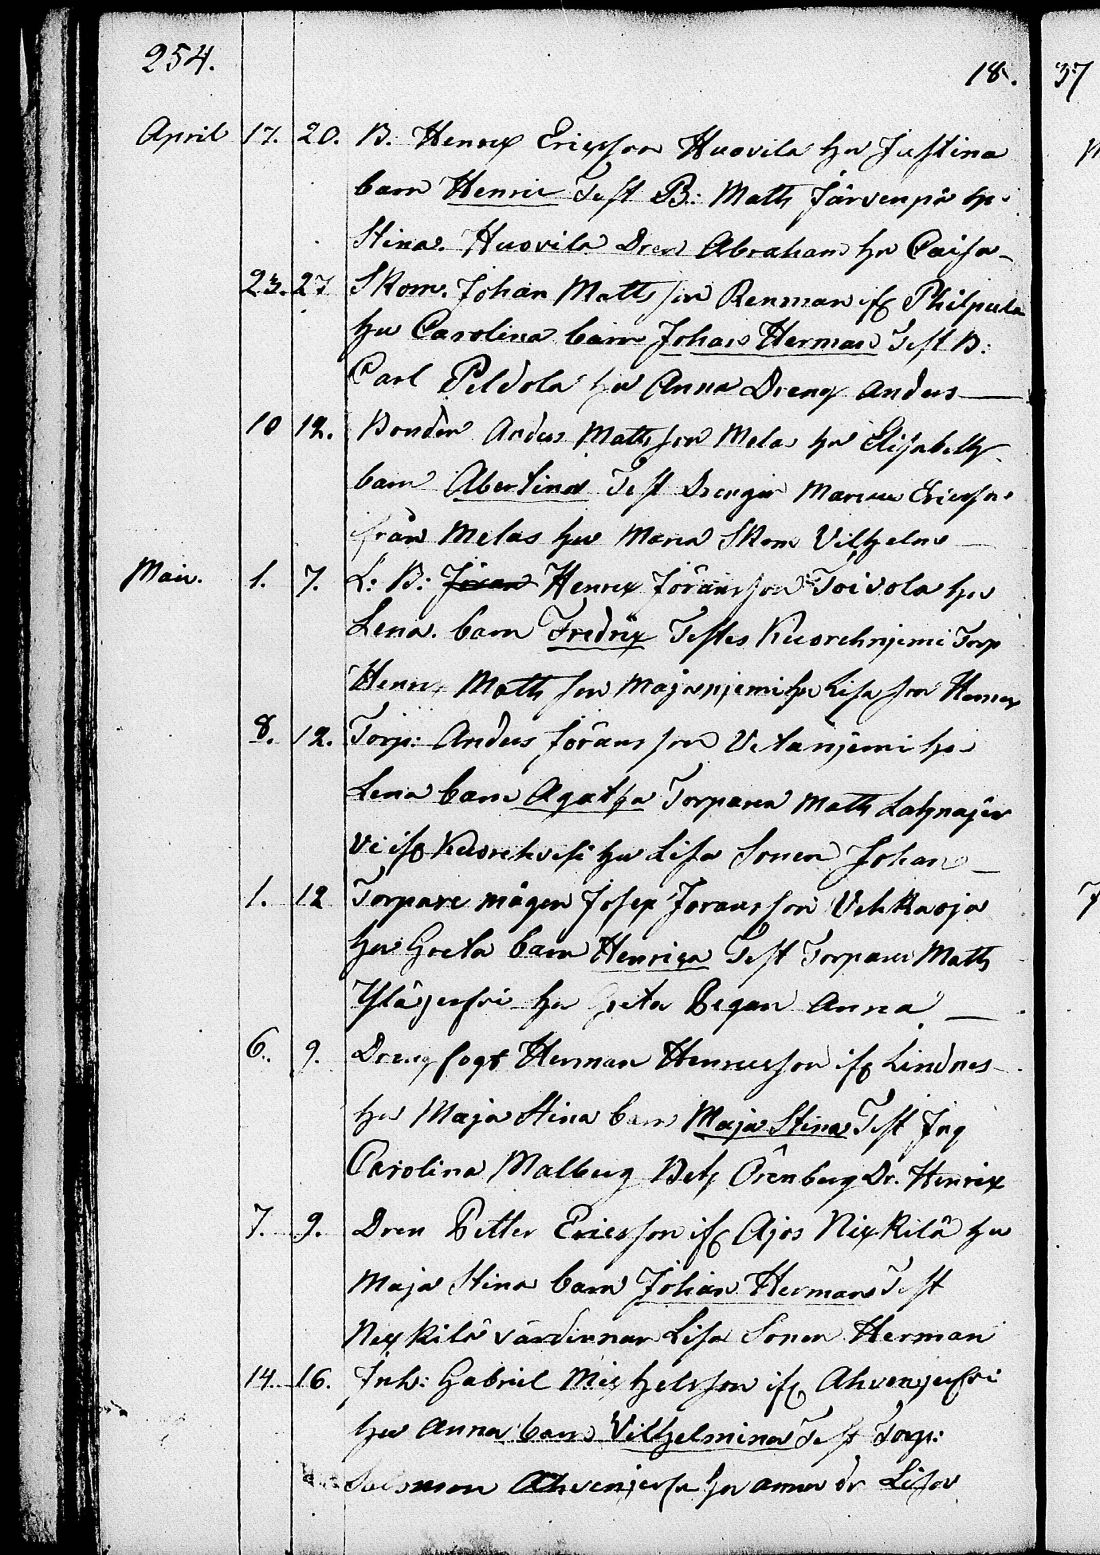 254.
18. 37
April 17. 20. B. Henrx Ericsson Huovila hu Justina
barn Henric Test B: Matts Järvenpä hu
Stina. Huovila Dren Abraham hu Caisa
23. 27 Skom. Johan Mattsson Renman if Philpula
hu Carolina barn Johan Herman Test B:
Carl Peldola hu Anna Dreng Anders
10 12. Bonden Anders Mattsson Mela hu Elisabeth
barn Abertina Test Drengen Marcus Ericsson
från Melas hu Maria Skom Vilhelm
Maii. 1. 7. L: B: Jöran Henrx Jöransson Toivola hu
Lena. barn Fredrix Testes Kuorehnjemi Torp
Henrx Mattsson Majanjemi hu Lisa son Henrx
8. 12. Torp: Anders Jöransson Vetanjemi hu
Lena barn Agatha Torparen Matts Lahnajär
vi if Kuorehvesi hu Lisa Sonen Johan
1. 12 Torpare mågen Josep Joransson Vehkaoja
hu Greta barn Henrica Test Torparen Matts
Yläjerfvi hu Greta Pegan Anna
6. 9. Dreng fogt Herman Henricsson if Lindnes
hu Maja Stina barn Maja Stina Test Jng
Carolina Malberg Bet Örenberg Dr. Henrix
7. 9. Dren Petter Ericsson if Ajos Nixkilä hu
Maja Stina barn Johan Herman Test
Nexkilä värdinnan Lisa Sonen Herman
14 16. Inh: Gabriel Mixhelsson if Ahvenjerfvi
hu Anna barn Vilhelmina Test Torp:
Salomon Ahvenjerfvi hu Anna dr Lisa